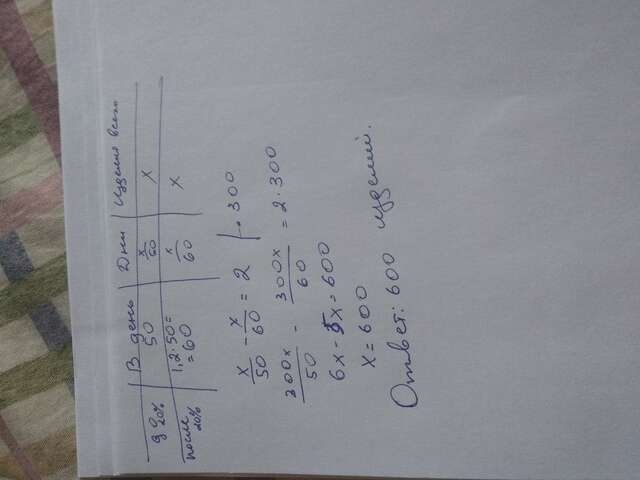 В день | Дни | Изделия всего
д 20% | 50 | x/50 | x
после 20% | 1,2·50= =60 | x/60 | x
x/50 - x/60 = 2 |·300
300x/50 - 300x/60 = 2·300
6x-5x=600
x=600
Ответ: 600 изделий.